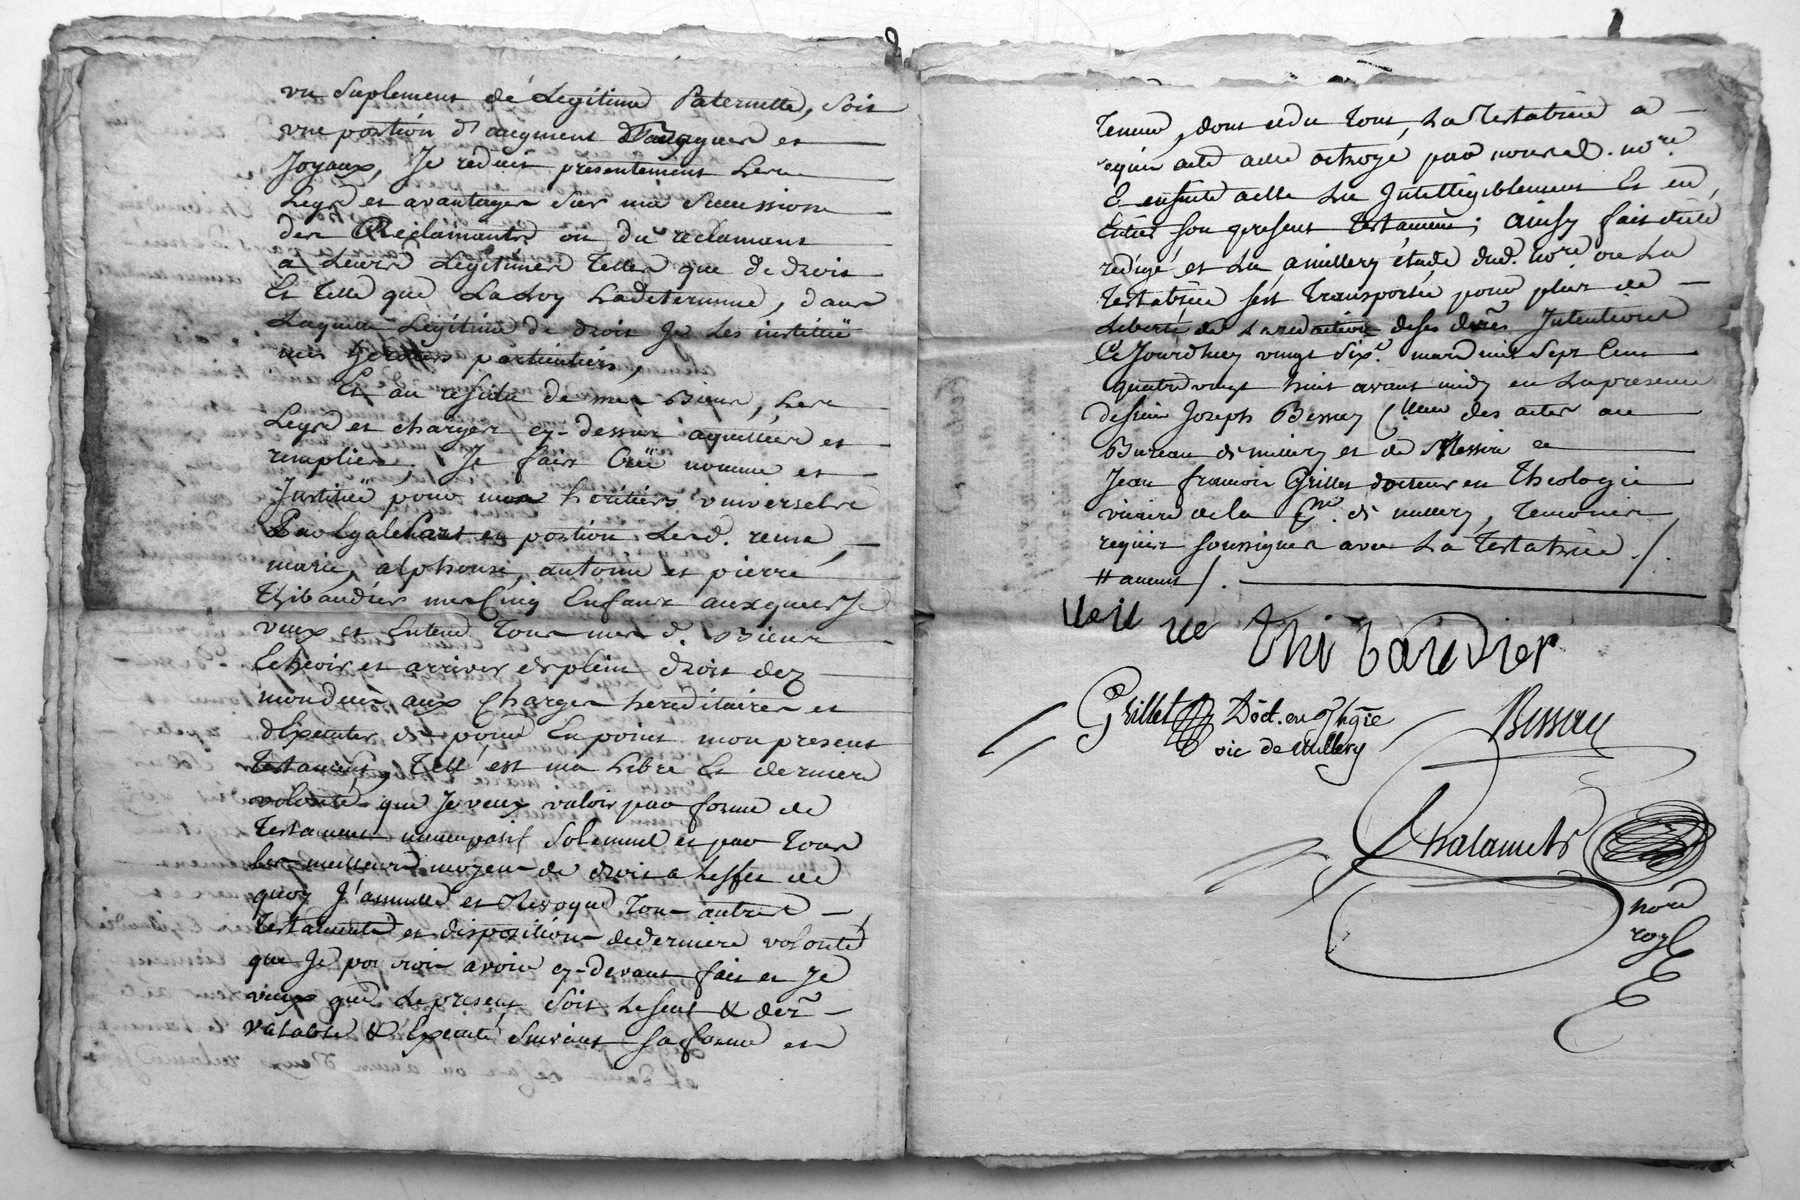 un suplement de Légitime Paternelle, soit
une portion d'augment Bagues et
Joyaux, Je reduis presentement Les
Legs et avantages sur ma Succession
des Reclamants ou du reclamant
a Leurs Légitimes Telles que de droit
Et Telle que La Loy La determine, dans
Laquelle Légitime de droit Je Les institüe
mes heritiers particuliers,
Et au residu de mes Biens, Les
Legs et charges cy-dessus aquittées et
remplies, Je fais Créé nomme et
Institüe pour mes heritiers universels
Par Egale Part et portion Lesd. reine,
marie, alphonse, antoine et pierre
Thibaudier mes Cinq Enfants auxquels Je
veux et Entend Tous mes d. Biens
Echeoir et arriver de plein droit dez
mon deces aux Charges hereditaires et
d'Executer de point En point mon present
Testament, Tell' est ma Libre Et derniere
volonté que Je veux valoir par forme de
Testament nuncupatif Solemnel et par Tous
Les meilleurs moyens de droit a L'effet de
quoy J'annulle et Revoque Tous autres
Testaments et dispositions de derniere volonté
que Je pourrois avoir cy-devant fait et Je
veux que Le present soit Le seul & der.
valable & Executé Suivant sa forme et
Teneur, dont et du Tout, La Testatrice a
requis acte a elle octroyé par nous d. nore.
& ensuite a elle Lu Intelligiblement Et en
Entier son present Testament; ainsy fait dicté
redigé et Lu a millery étude dud. nore ou La
Testatrice s'est Transportée pour plus de
Liberté de La redaction de ses dres Intentions
Ce Jourd'huy vingt Six. mars mil Sept Cent
quatre vingt huit avant midy en La presence
de sieur Joseph Bessey C. des actes au
Bureau de millery et de Messire
Jean francois Grillet docteur en Theologie
vicaire de la de millery, Temoins
requis soussignes avec La Testatrice ./.
# ament /.
veu ve Thi baudier
Grillet Doct. en Thgie
vic de millery
Bessey
Chalamel
nore
royl